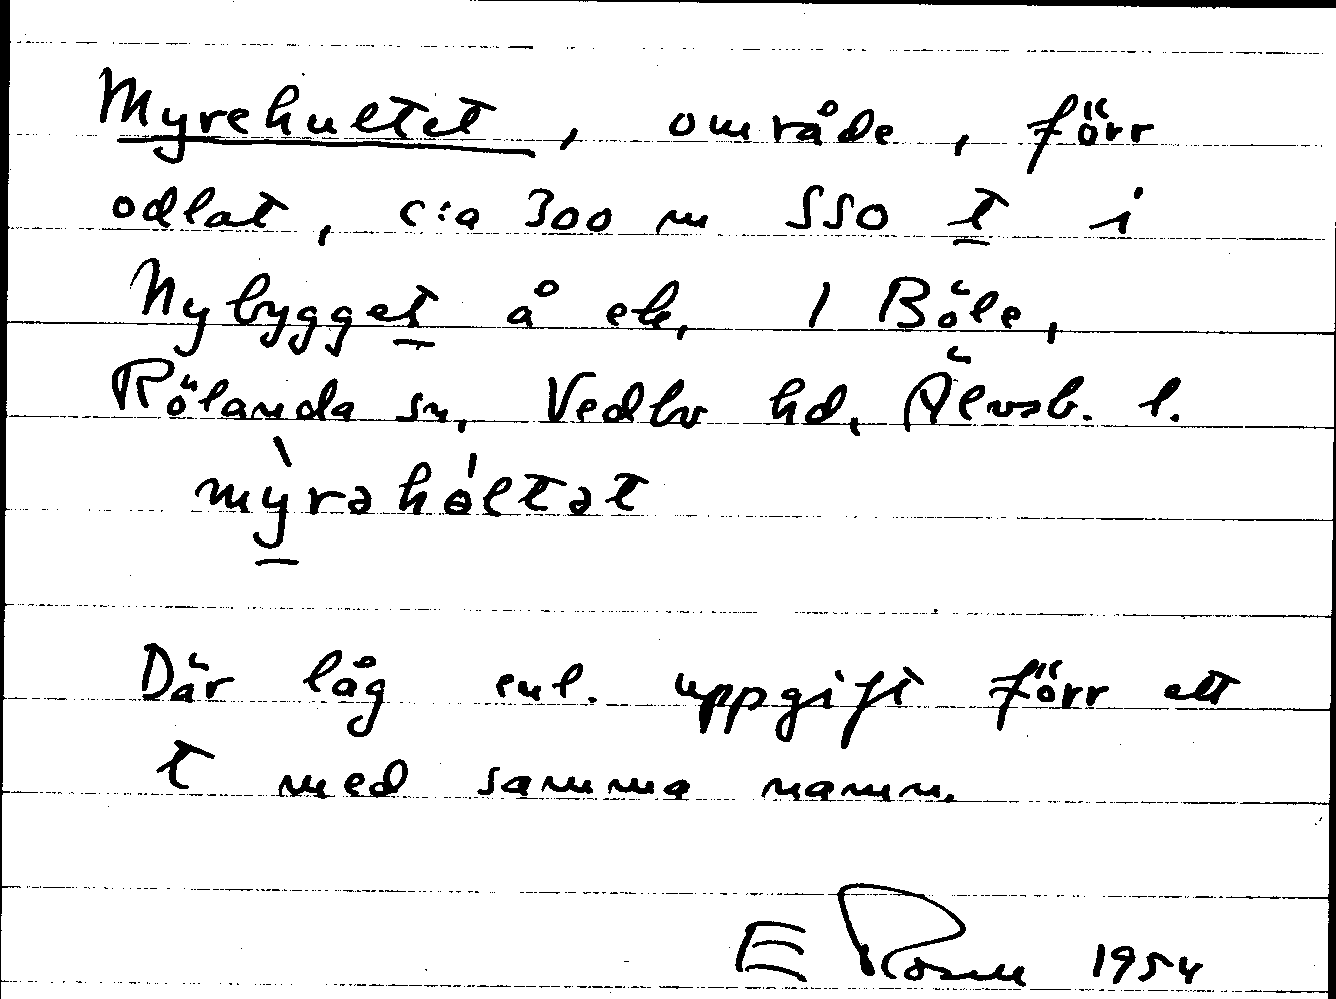 Myrehultet, område, förr
odlat, c:a 300 m SSO t i
Nybygget å ek. 1 Böle,
Rölanda sn, Vedbo hd, Älvsb. l.
mỳrahóltat
Där låg enl. uppgift förr ett
t med samma namn.
E Rosell 1954